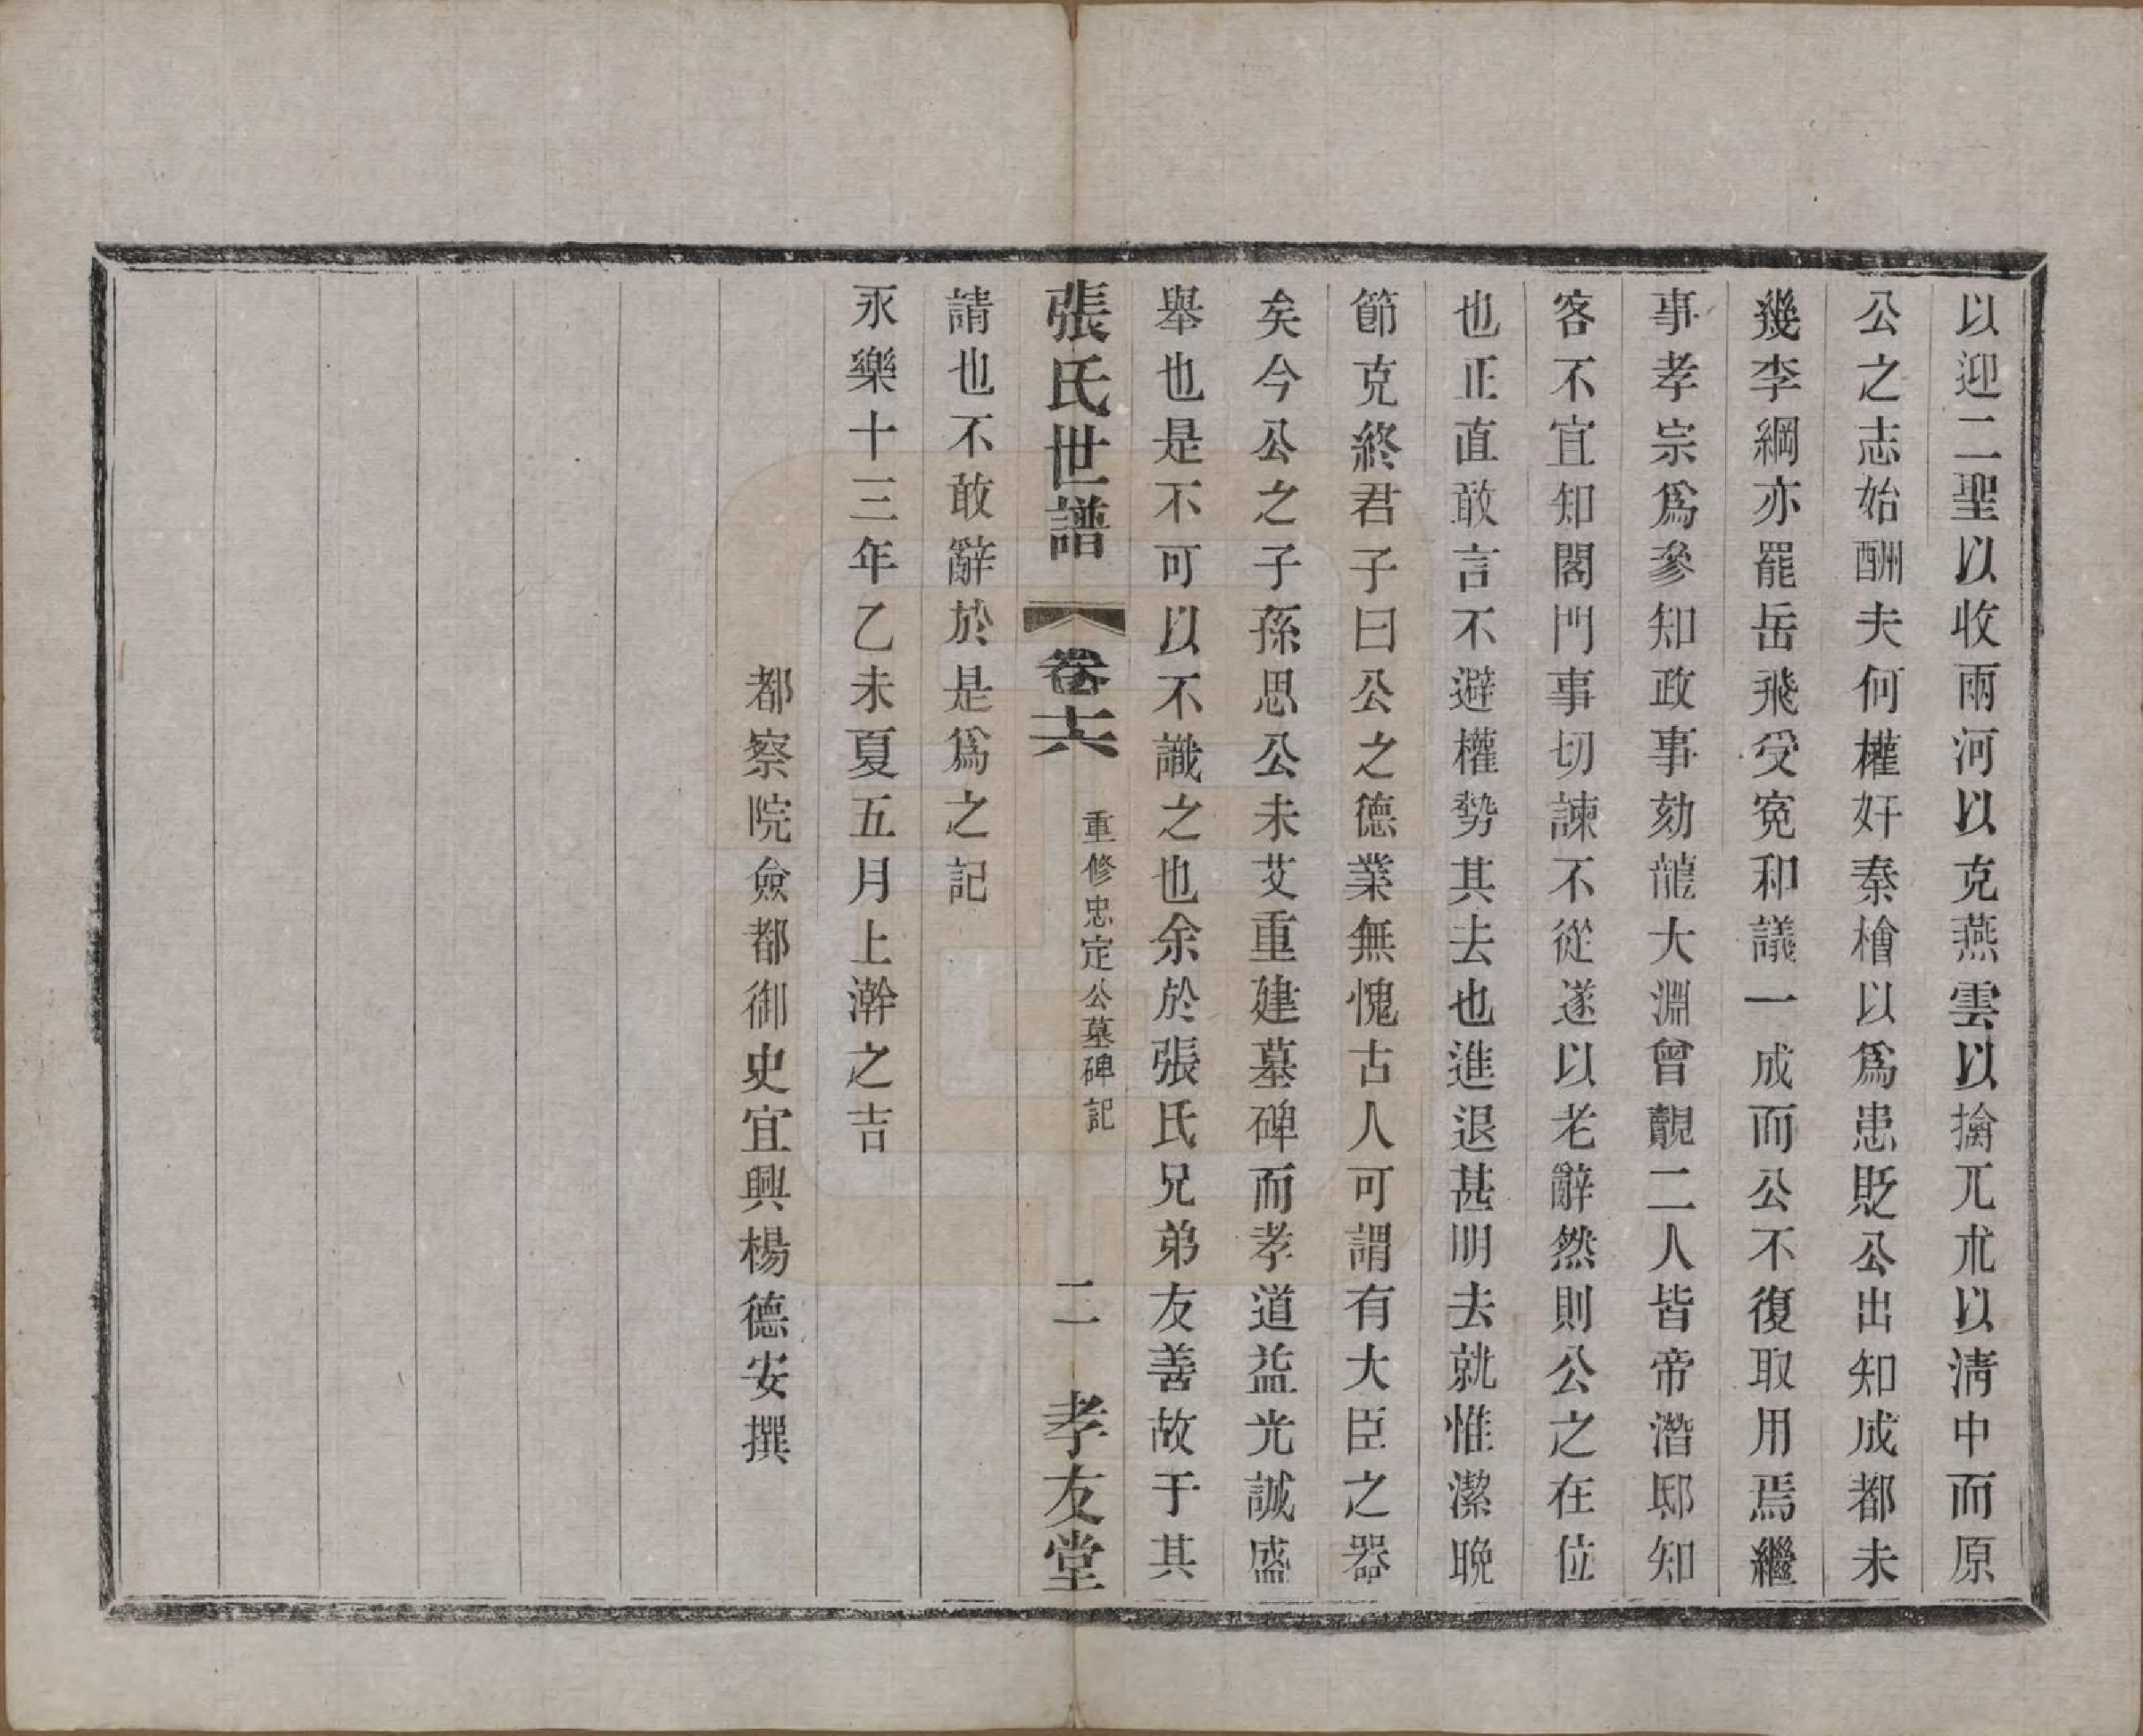 以迎二聖以收兩河以克燕雲以擒兀朮以淸中而原
公之志始酬夫何權奸秦檜以爲患貶公出知成都未
幾李綱亦罷岳飛受寃和議一成而公不復取用焉繼
事孝宗爲參知政事劾龍大淵曾覿二人皆帝潛邸知
客不宜知閣門事切諫不從遂以老辭然則公之在位
也正直敢言不避權勢其去也進退甚明去就惟潔晚
節克終君子曰公之德業無愧古人可謂有大臣之器
矣今公之子孫思公未艾重建墓碑而孝道益光誠盛
舉也是不可以不識之也余於張氏兄弟友善故于其
張氏世譜 卷十六 重修忠定公墓碑記 二 孝友堂
請也不敢辭於是爲之記
永樂十三年乙未夏五月上澣之吉
都察院僉都御史宜興楊德安撰